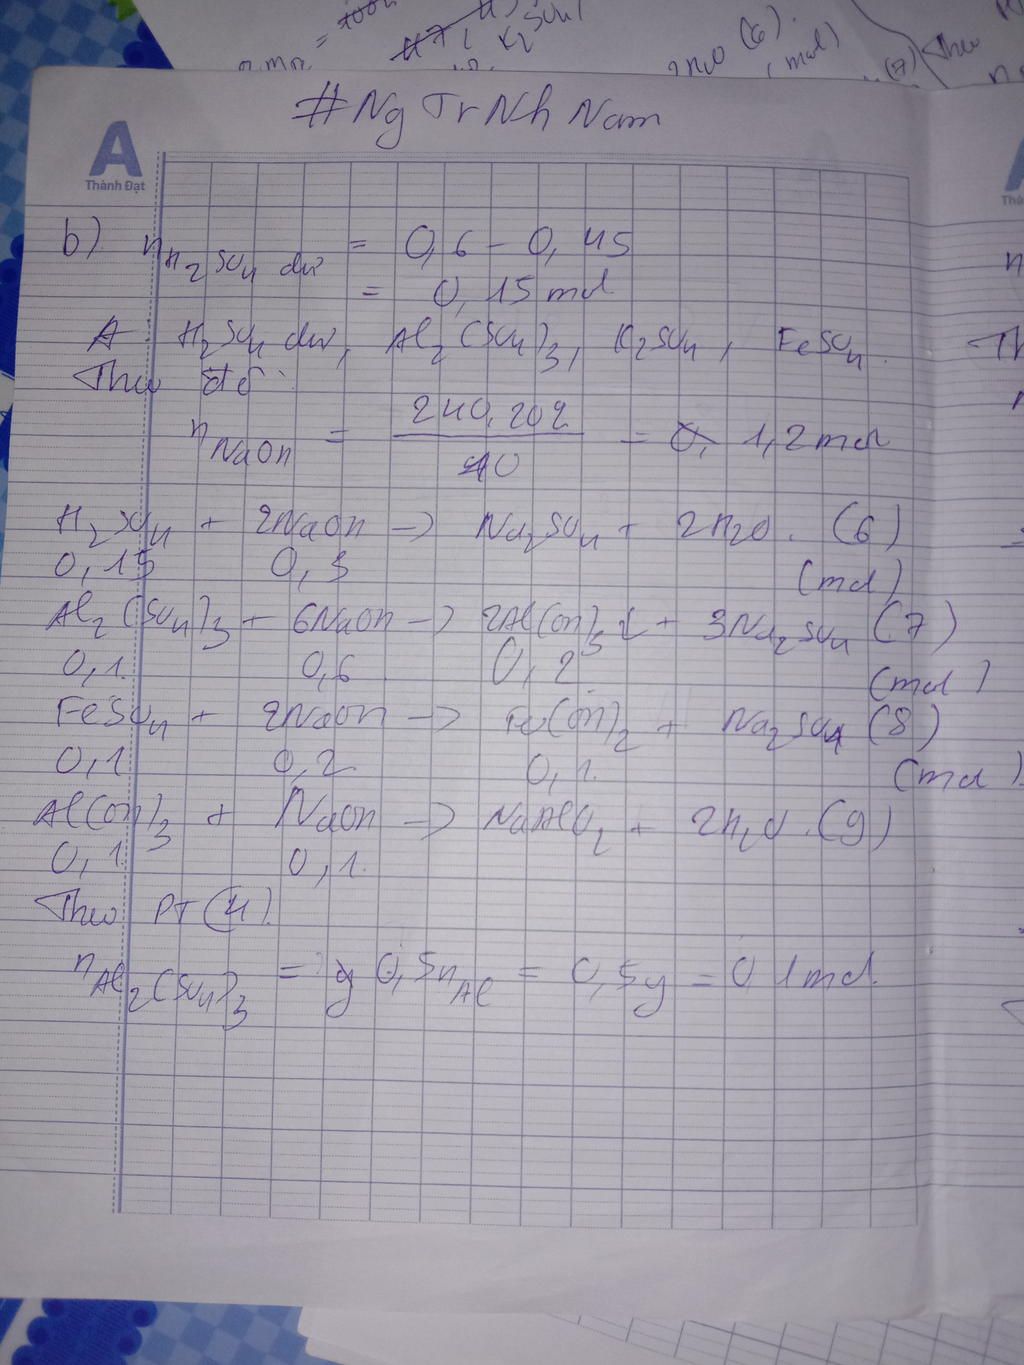 #Ng Tr Nh Nam
A
Thành Đạt
b) nH2SO4 dư = 0,6 - 0,45
= 0,15 mol
A: H2SO4 dư, Al2(SO4)3, K2SO4, FeSO4.
Theo đề:
nNaOH = 240.20% / 40 = 1,2 mol
H2SO4 + 2NaOH -> Na2SO4 + 2H2O. (6)
0,15 0,3 (mol)
Al2(SO4)3 + 6NaOH -> 2Al(OH)3↓ + 3Na2SO4 (7)
0,1. 0,6 0,2 (mol)
FeSO4 + 2NaOH -> Fe(OH)2 + Na2SO4 (8)
0,1 0,2 0,1. (mol)
Al(OH)3 + NaOH -> NaAlO2 + 2H2O. (9)
0,1 0,1.
Theo PT(4).
nAl2(SO4)3 = 0,5nAl = 0,5y = 0,1mol.
2H2O (6)
(mol)
(7)
Theo